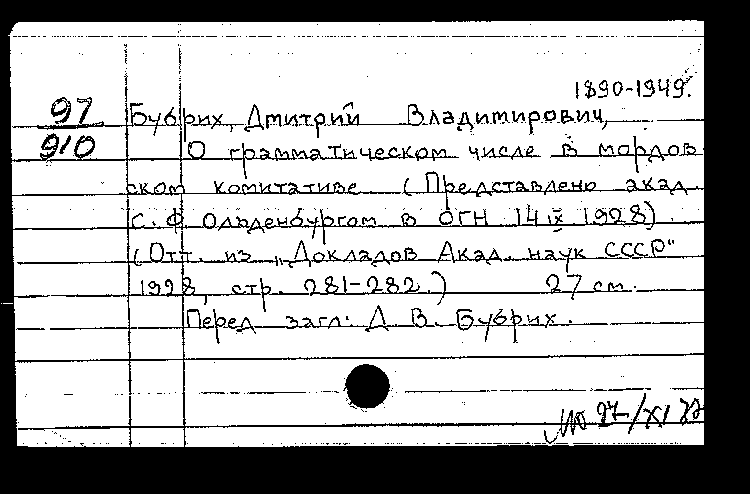 1890-1949.
97
910
Бубрих, Дмитрий Владимирович,
О грамматическом числе в мордов
ском комитативе (Представлено акад.
С. Ф Ольденбургом в ОГН 14 IX 1928)
(Отт. из „Докладов Акад. наук СССР"
1928, стр. 281-282.) 27 см.
Перед загл. Д В. Бубрих.
27/XI